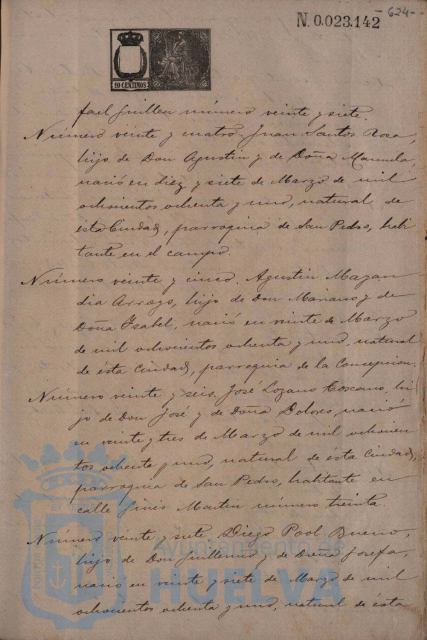 N. 0.023.142
-624-
10 CENTIMOS
fael Guillen número veinte y siete.
Número veinte y cuatro. Juan Santos Rosa,
hijo de Don Agustin y de Doña Manuela,
nació en diez y siete de Marzo de mil
ochocientos ochenta y uno, natural de
esta Ciudad, parroquia de San Pedro, habi
tante en el campo.
Número veinte y cinco. Agustin Magan
dia Arroyo, hijo de Don Mariano y de
Doña Isabel, nació en veinte de Marzo
de mil ochocientos ochenta y uno, natural
de esta Ciudad, parroquia de la Concepcion.
Número veinte y seis. José Lozano Toscano, hi
jo de Don José y de Doña Dolores, nació
en veinte y tres de Marzo de mil ochocien
tos ochenta y uno, natural de esta Ciudad,
parroquia de San Pedro, habitante en
calle Ginés Martin número treinta.
Número veinte y siete Diego Pool Bueno,
hijo de Don Guillermo y de Doña Josefa,
nació en veinte y siete de Marzo de mil
ochocientos ochenta y uno, natural de esta
Ayuntamiento de
HUELVA